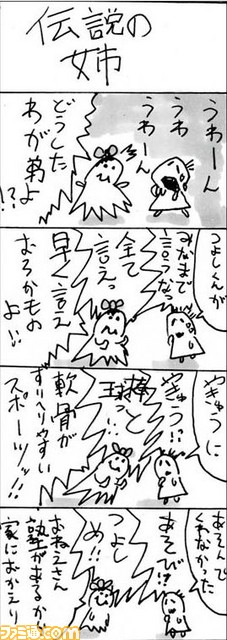 伝説の
姉
うわーん
うわ
うわーん
どうした
わが弟よ
!?
つよしくんが
みなまで
言うなっ
全て
言えっ
早く言え
おろかもの
よ!!
やきゅうに
やきゅう!!
棒と
球っ…!!
軟骨が
ずりへりやすい
スポーツッ!!!
あそんで
くれなかった
あそび!?
つよし
め!!
おねえさん
塾があるから
家におかえり
ファミ通.com